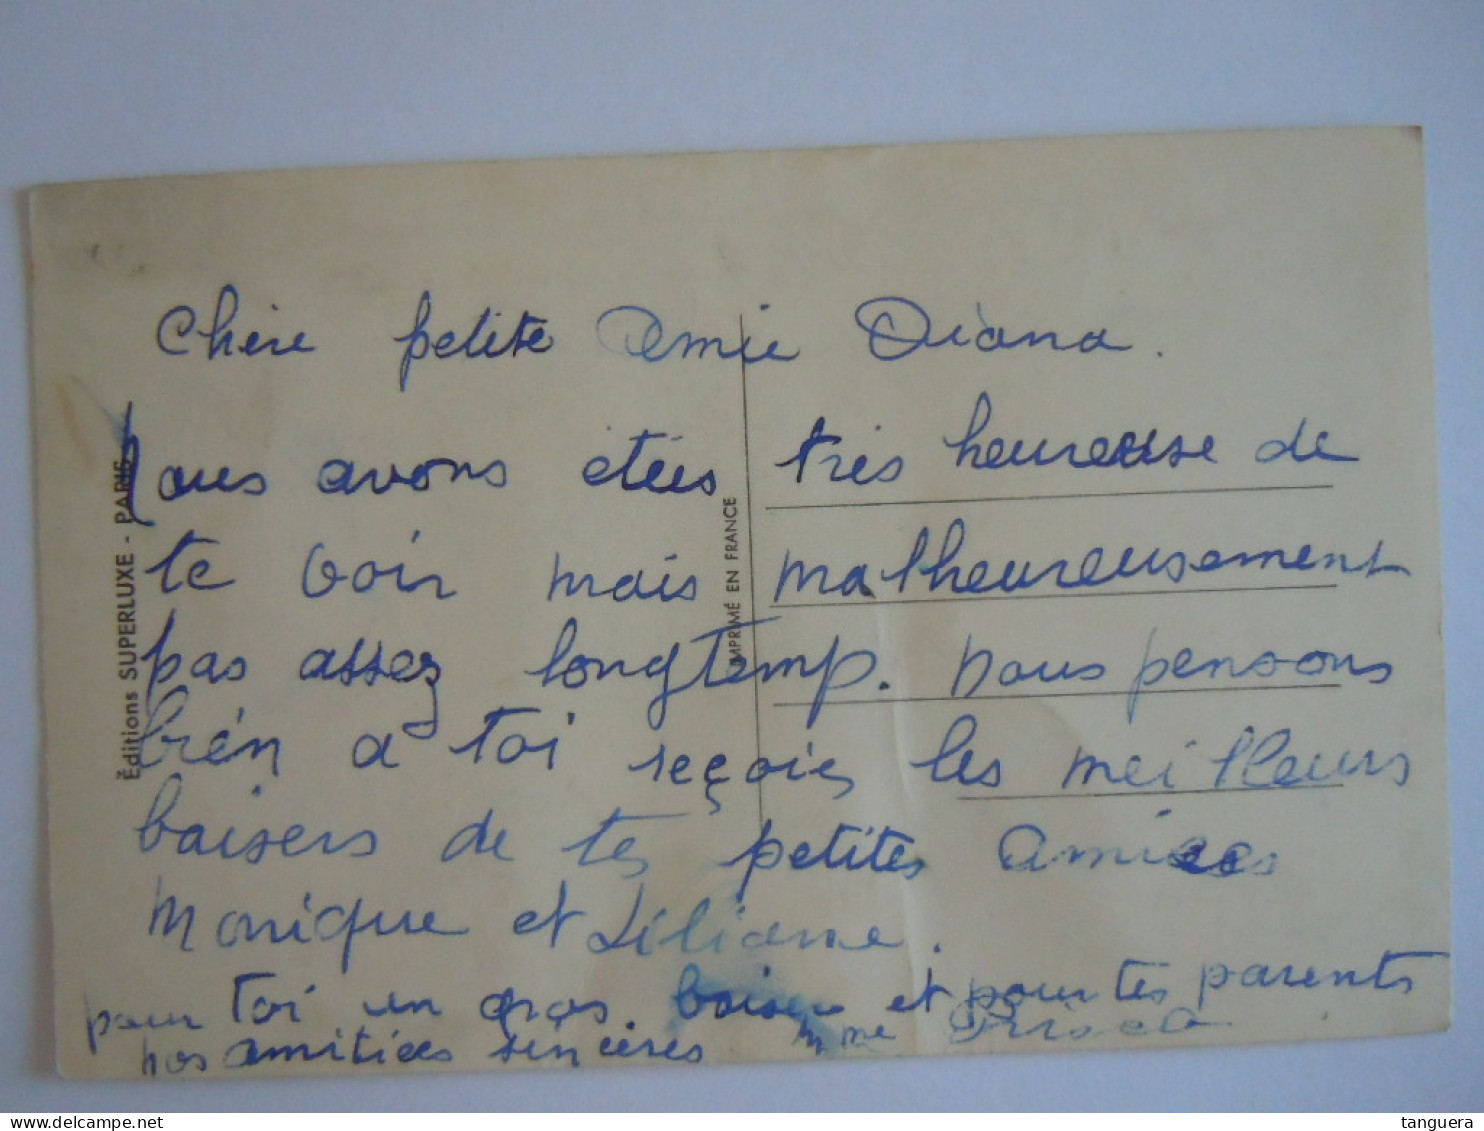 Chère petite Amie Diana.
Nous avons étées très heureuse de
te voir mais malheureusement
pas assez longtemp. nous pensons
bién a toi reçois les meilleurs
baisers de tes petites amies
Monique et Liliane.
pour toi un gros baisers et pour tes parents
nos amitiées sincères Mme
Éditions SUPERLUXE - PARIS
IMPRIMÉ EN FRANCE
delcampe.net
tanguera